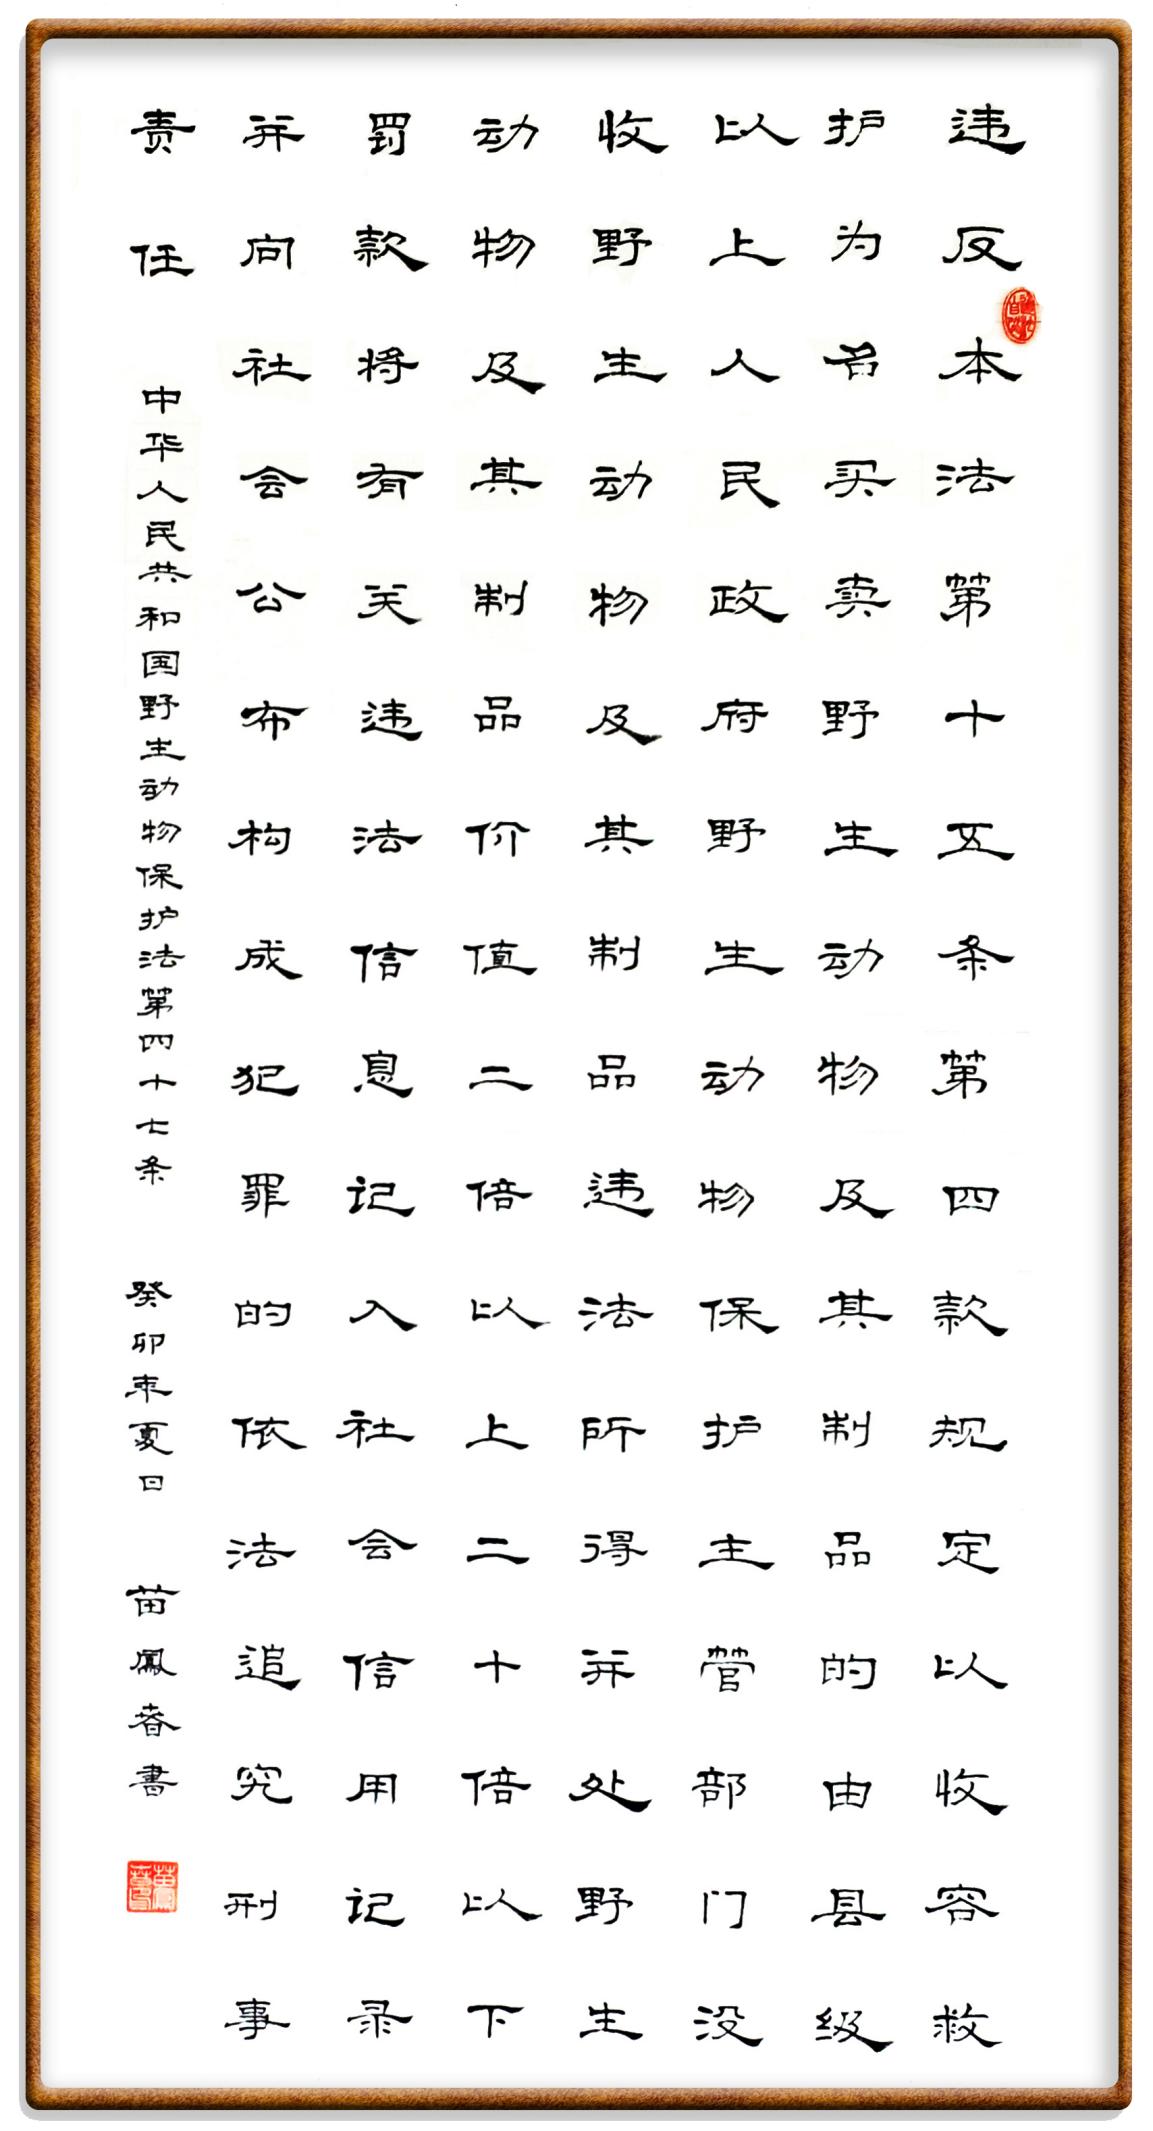 违反本法第十五条第四款规定以收容救
护为名买卖野生动物及其制品的由县级
以上人民政府野生动物保护主管部门没
收野生动物及其制品违法所得并处野生
动物及其制品价值二倍以上二十倍以下
罚款将有关违法信息记入社会信用记录
并向社会公布构成犯罪的依法追究刑事
责任
中华人民共和国野生动物保护法第四十七条
癸卯年夏日
苗鳳春書